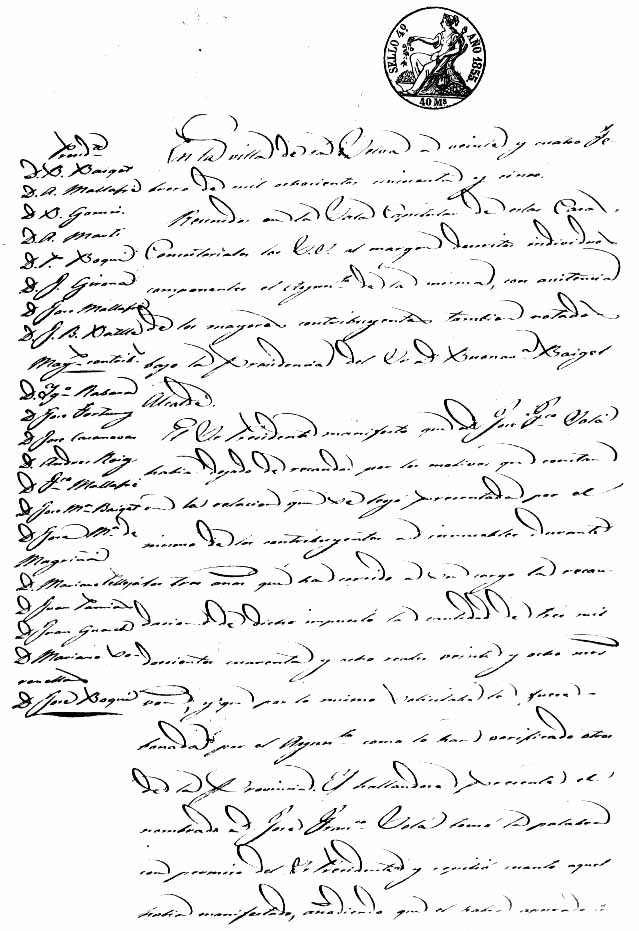 SELLO 4º AÑO 1855.
40 Ms
Presidte
D. B. Baiget
D. A. Mallafré
D. B. Gomis
D. A. Martí
D. Fº Boqué
D. J. Girona
D. Jose Mallafré
D. J. B. Batlle
Mayes contribs
D. Igno Rabasa
D. Jose Fortuny
D. Jose Casanovas
D. Andres Roig
D. Fco Mallafré
D. Jose Mª Baiget
D. Jose Mª de
Magriñá
D. Mariano
D. Juan
D. Juan
D. Mariano
D. Jose Boqué
En la villa de la Selva a veinte y cuatro Fe
brero de mil ochocientos cincuenta y cinco.
Reunidos en la Sala Capitular de estas Casas
Consistoriales los S.S. al margen descritos individuos
componentes el Ayunto de la misma, con asistencia
de los mayores contribuyentes tambien notados
bajo la Presidencia del Sr D. Buenavª Baiget
Alcalde.
El Sr Presidente manifestó que D. Jose Fco Solá
habia dejado de recaudar por los motivos que constan
en la relacion que se leyó, presentada por el
mismo de los contribuyentes a inmuebles durante
los tres años que ha corrido a su cargo la recau
dacion de dicho impuesto la cantidad de tres mil
doscientos cuarenta y ocho reales veinte y ocho mrs
von, y que por lo mismo solicitaba le fuera
abonada por el Ayunto como lo han verificado otros
de la Provincia. Y hallandose presente el
nombrado D. Jose Franco Solá tomó la palabra
con permiso del Sr Presidente y repitió cuanto aquel
habia manifestado, añadiendo que el habia apurado